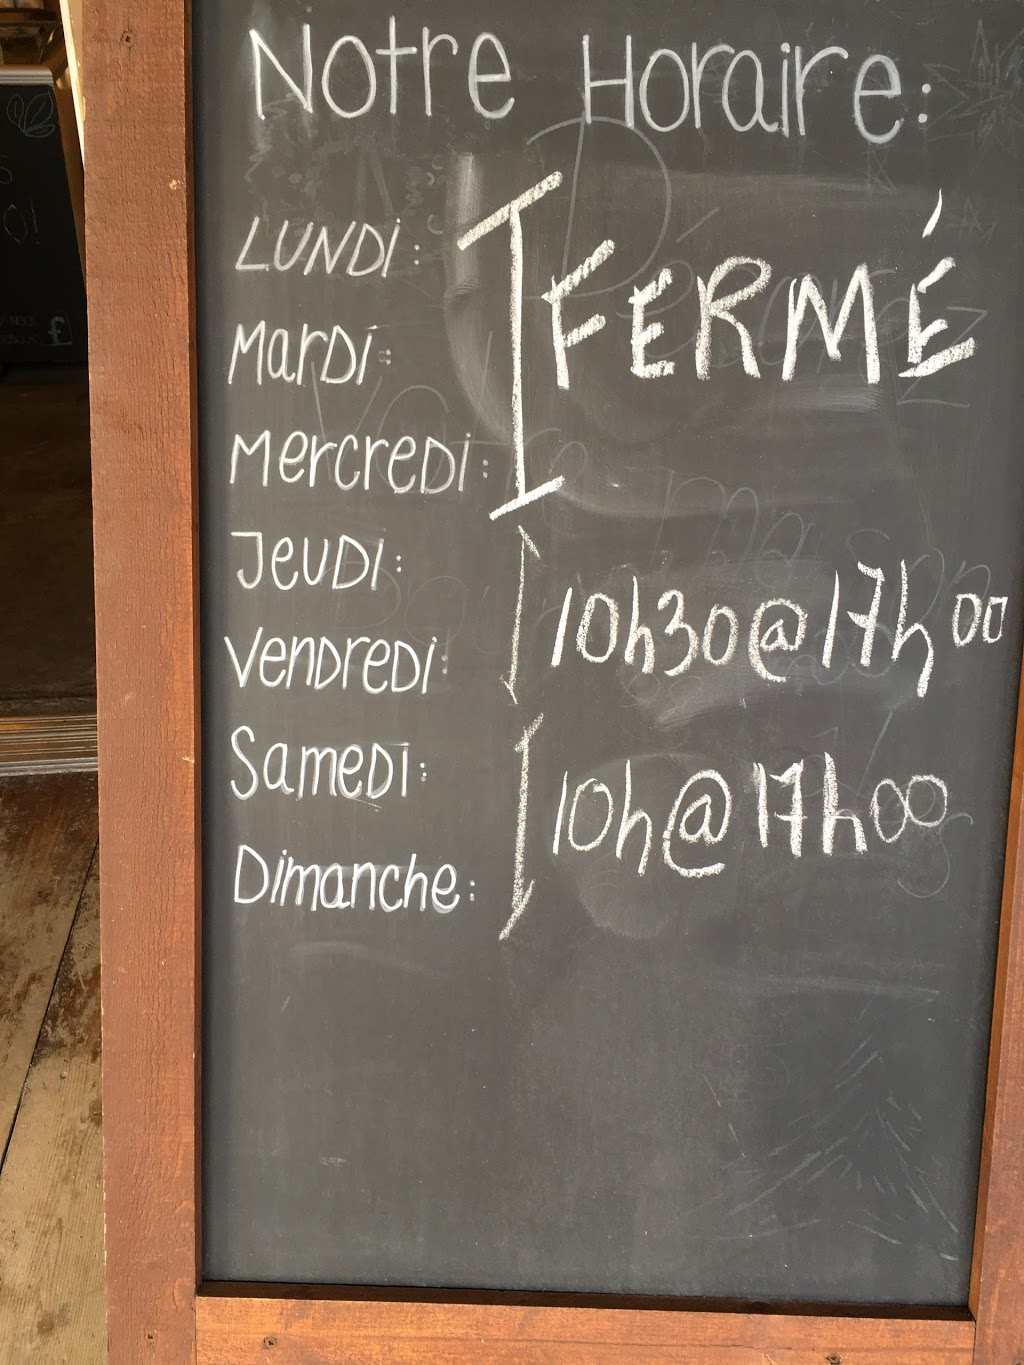 Notre Horaire:
LUNDI:
MarDi:
MercreDi:
FERMÉ
JeuDi:
VenDreDi:
10h30@17h00
SameDi:
Dimanche:
10h@17h00